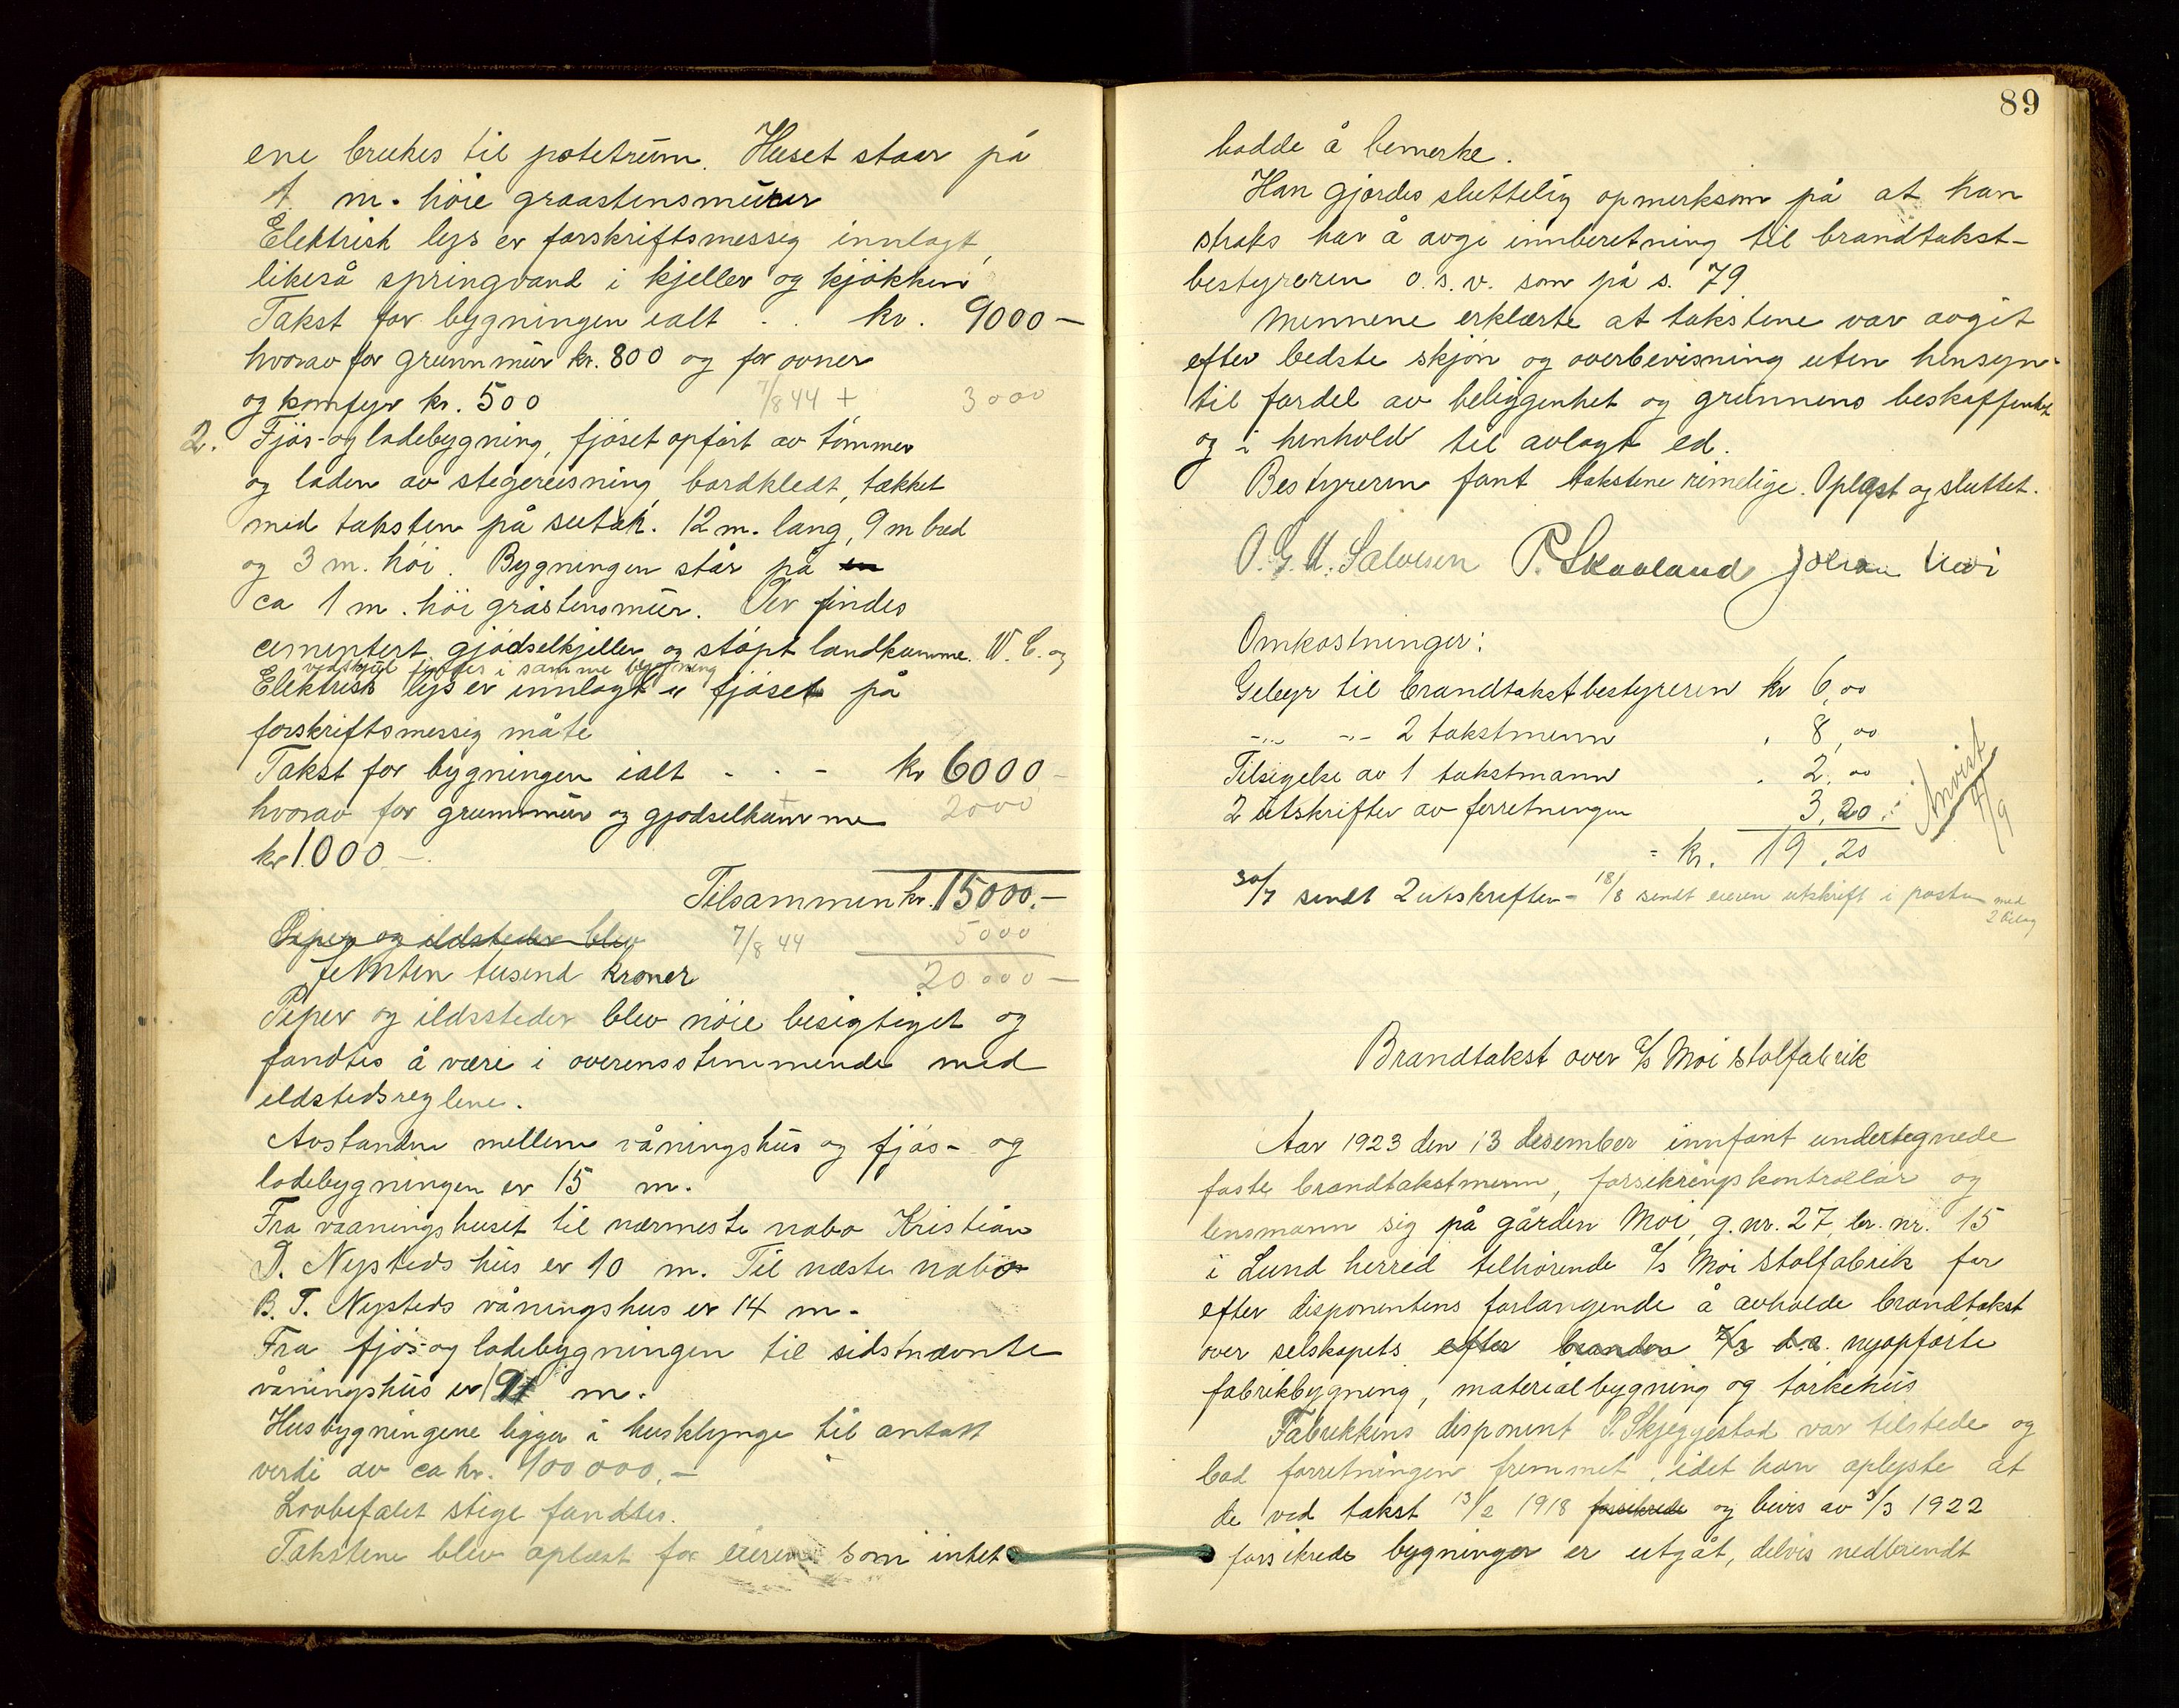 ene brukes til potetrum. Huset staar på
1 m. höie graastensmurer
Elektrisk lys er forskriftsmessig innlagt,
likeså springvand i kjeller og kjökken
Takst for bygningen ialt . . kr. 9000 –
hvorav for grunnmur kr. 800 og for ovner
og komfyr kr. 500 7/8 44 + 3000
2. Fjös- og ladebygning, fjöset opfört av tömmer
og laden av stegereisning, bordkledt, tækket
med taksten på sutak. 12 m. lang, 9 m bred
og 3 m. höi. Bygningen står på en
ca 1 m. höi gråstensmur. Der findes
cementert gjödselkjeller og stöpt landkumme. W. C. og
vedskjul findes i samme bygning
Elektrisk lys er innlagt i fjöset på
forskriftsmessig måte
Takst for bygningen ialt - . - kr 6000 –
hvorav for grunnmur og gjödselkumme + 2000
kr 1000 –.
Tilsammen kr. 15000.–
Piper og ildsteder blev 7/8 44 5000
femten tusend kroner 20000 –
Piper og ildssteder blev nöie besigtiget og
fandtes å være i overensstemmende med
ildstedsreglene.
Avstanden mellem våningshus og fjös- og
ladebygningen er 15 m.
Fra vaaningshuset til nærmeste nabo Kristian
D. Nysteds hus er 10 m. Til næste nabo
B. T. Nysteds våningshus er 14 m.
Fra fjös- og ladebygningen til sidstnævnte
våningshus er m.
Husbygningene ligger i husklynge til antatt
verdi av ca kr. 100000.–
Lovbefalet stige fandtes.
Takstene blev oplæst for eieren som intet
89
hadde å bemerke.
Han gjordes sluttelig opmerksom på at han
straks har å avgi innberetning til brandtakst-
bestyreren o.s.v. som på s. 79
Mennene erklærte at takstene var avgit
efter bedste skjön og overbevisning uten hensyn
til fordel av beliggenhet og grunnens beskaffenhet
og i henhold til avlagt ed.
Bestyreren fant takstene rimelige. Oplæst og sluttet.
O. G. U. Salvesen P. Skaaland Johan Moi
Omkostninger:
Gebyr til brandtakstbestyreren kr 6,00
-"- -"- 2 takstmenn . 8,00
Tilsigelse av 1 takstmann . 2,00
2 utskrifter av forretningen 3,20
Anvist 4/9
= kr. 19,20
30/7 sendt 2 utskrifter – 18/8 sendt eieren utskrift i posten med
2 bilag
Brandtakst over A/S Moi Stolfabrik
Aar 1923 den 13 desember innfant undertegnede
faste brandtakstmenn, forsikringskontrollör og
lensmann sig på gården Moi, g.nr. 27, br. nr. 15
i Lund herred tilhörende A/S Moi Stolfabrik for
efter disponentens forlangende å avholde brandtakst
over selskapets efter branden 7/3 d.a. nyopförte
fabrikbygning, materialbygning og törkehus
Fabrikkens disponent P. Skjeggestad var tilstede og
bad forretningen fremmet, idet han oplyste at
de ved takst 13/2 1918 forsikrede og bevis av 3/3 1922
forsikrede bygninger er utgåt, delvis nedbrendt